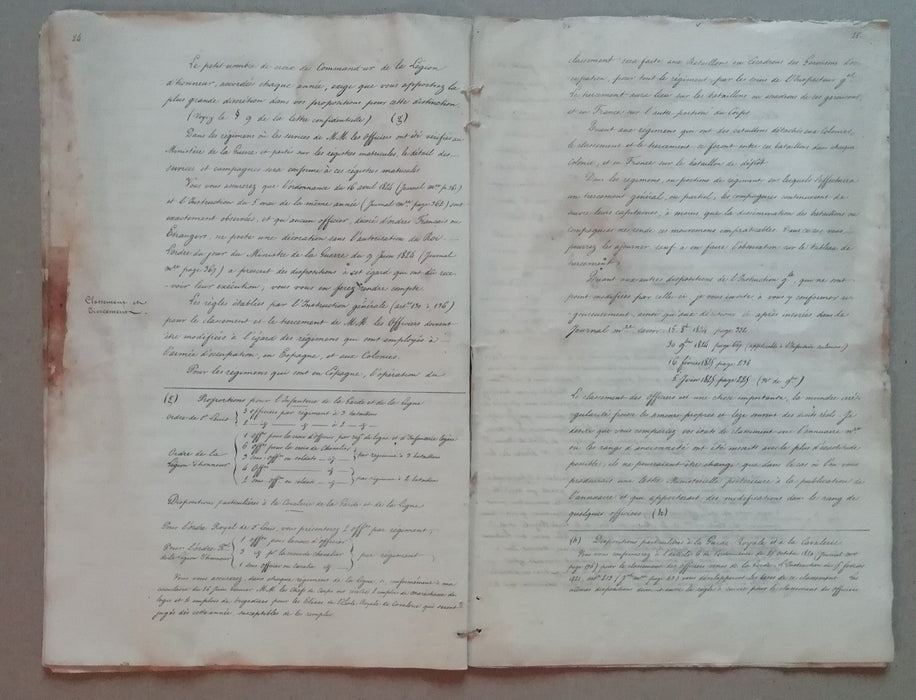 24.
Le petit nombre de croix de Commandeur de la Légion
d'honneur, accordées chaque année, exige que vous apportiez la
plus grande discrétion dans vos propositions pour cette distinction.
(Voyez le § 9 de la lettre confidentielle) (g)
Dans les régimens où les services de M.M. les Officiers ont été vérifiés au
Ministère de la Guerre et portés sur les registres matricules, le détail des
services et campagnes sera conforme à ces registres matricules.
Vous vous assurerez que l'ordonnance du 16 avril 1824 (Journal mre p. 361)
et l'Instruction du 5 mai de la même année (Journal mre page 362) sont
exactement observées, et qu'aucun officier, décoré d'ordres Français ou
Étrangers, ne porte une décoration sans l'autorisation du Roi.
L'ordre du jour du Ministre de la Guerre du 9 Juin 1824 (Journal
mre page 369) a prescrit des dispositions à cet égard qui ont dû rece-
voir leur exécution, vous vous en ferez rendre compte.
Classement et
Tiercement.
Les règles établies par l'Instruction générale (art. 130 à 136)
pour le classement et le tiercement de M.M. les Officiers doivent
être modifiées à l'égard des régimens qui sont employés à
l'armée d'occupation, en Espagne, et aux Colonies.
Pour les régimens qui sont en Espagne, l'opération du
(g) Proportions pour l'Infanterie de la Garde et de la ligne
Ordre de St Louis { 3 officiers par régiment à 3 bataillons
2 à 2
Ordre de la
Légion d'honneur
1 offer pour la croix d'officier par régt de ligne et d'Infanterie légère
6 offers pour la croix de Chevalier
3 sous offers ou soldats } par régiment à 3 bataillons
4 Offers
2 sous offers ou soldats } par régiment à 2 bataillons
Dispositions particulières à la Cavalerie de la Garde et de la ligne
Pour l'Ordre Royal de St Louis, vous présenterez 2 offers par régiment;
Pour l'Ordre Rl
de la Légion d'honneur
1 offer pour la croix d'officier
3 pour la croix de chevalier
1 sous officier ou cavalier } par régiment
Vous vous assurerez, dans chaque régiment de la ligne, conformément à ma
circulaire du 20 Juin dernier M.M. les Chefs de Corps ont réservé 2 emplois de maréchaux des
logis et 2 emplois de brigadiers pour les Élèves de l'École Royale de Cavalerie qui seront
jugés dès cette année, susceptibles de les remplir.
25.
classement sera faite aux bataillons ou escadrons des Garnisons d'oc-
cupation, pour tout le régiment, par les soins de l'Inspecteur gal.
Le tiercement aura lieu sur les bataillons ou escadrons de ces garnisons,
et en France sur l'autre portion du Corps.
Quant aux régimens qui ont des bataillons détachés aux Colonies,
le classement et le tiercement se feront entre ces bataillons dans chaque
colonie, et en France sur le bataillon de dépôt.
Dans les régimens, ou portions de régiment sur lesquels s'effectuera
un tiercement général, ou partiel, les compagnies continueront de
suivre leurs capitaines, à moins que la dissémination des bataillons ou
compagnies ne rende ces mouvemens impraticables. Dans ce cas vous
pourrez les ajourner, sauf à en faire l'observation sur le tableau de
tiercement.
Quant aux autres dispositions de l'Instruction gle, qui ne sont
point modifiées par celle-ci, je vous invite à vous y conformer ri-
goureusement, ainsi qu'aux décisions ci-après insérées dans le
Journal mre savoir: 15 8bre 1824 page 332
30 9bre 1824 page 669 (applicable à l'Infanterie seulement)
16 février 1825 page 136
5 Juin 1825 page 525
Le classement des officiers est une chose importante, la moindre irré-
gularité peut blesser les amours propres et léser souvent des droits réels. Je
désire que vous compariez vos états de classement avec l'annuaire mre
où les rangs d'ancienneté ont été inscrits avec la plus d'exactitude
possible; ils ne pourraient être changés que dans le cas où l'on vous
produirait une lettre Ministérielle postérieure à la publication de
l'annuaire et qui apporterait des modifications dans le rang de
quelques officiers. (h)
(h) Dispositions particulières à la Garde Royale et à la Cavalerie.
Vous vous conformerez à l'article 6 de l'ordonnance du 25 octobre 1820 (Journal mre
page 90) pour le classement des officiers venus de la Garde. L'Instruction du 1er février
1821, art. 202 (Jal mre page 60) vous développera les bases de ce classement. Les
mêmes dispositions sont à suivre pour le classement des officiers